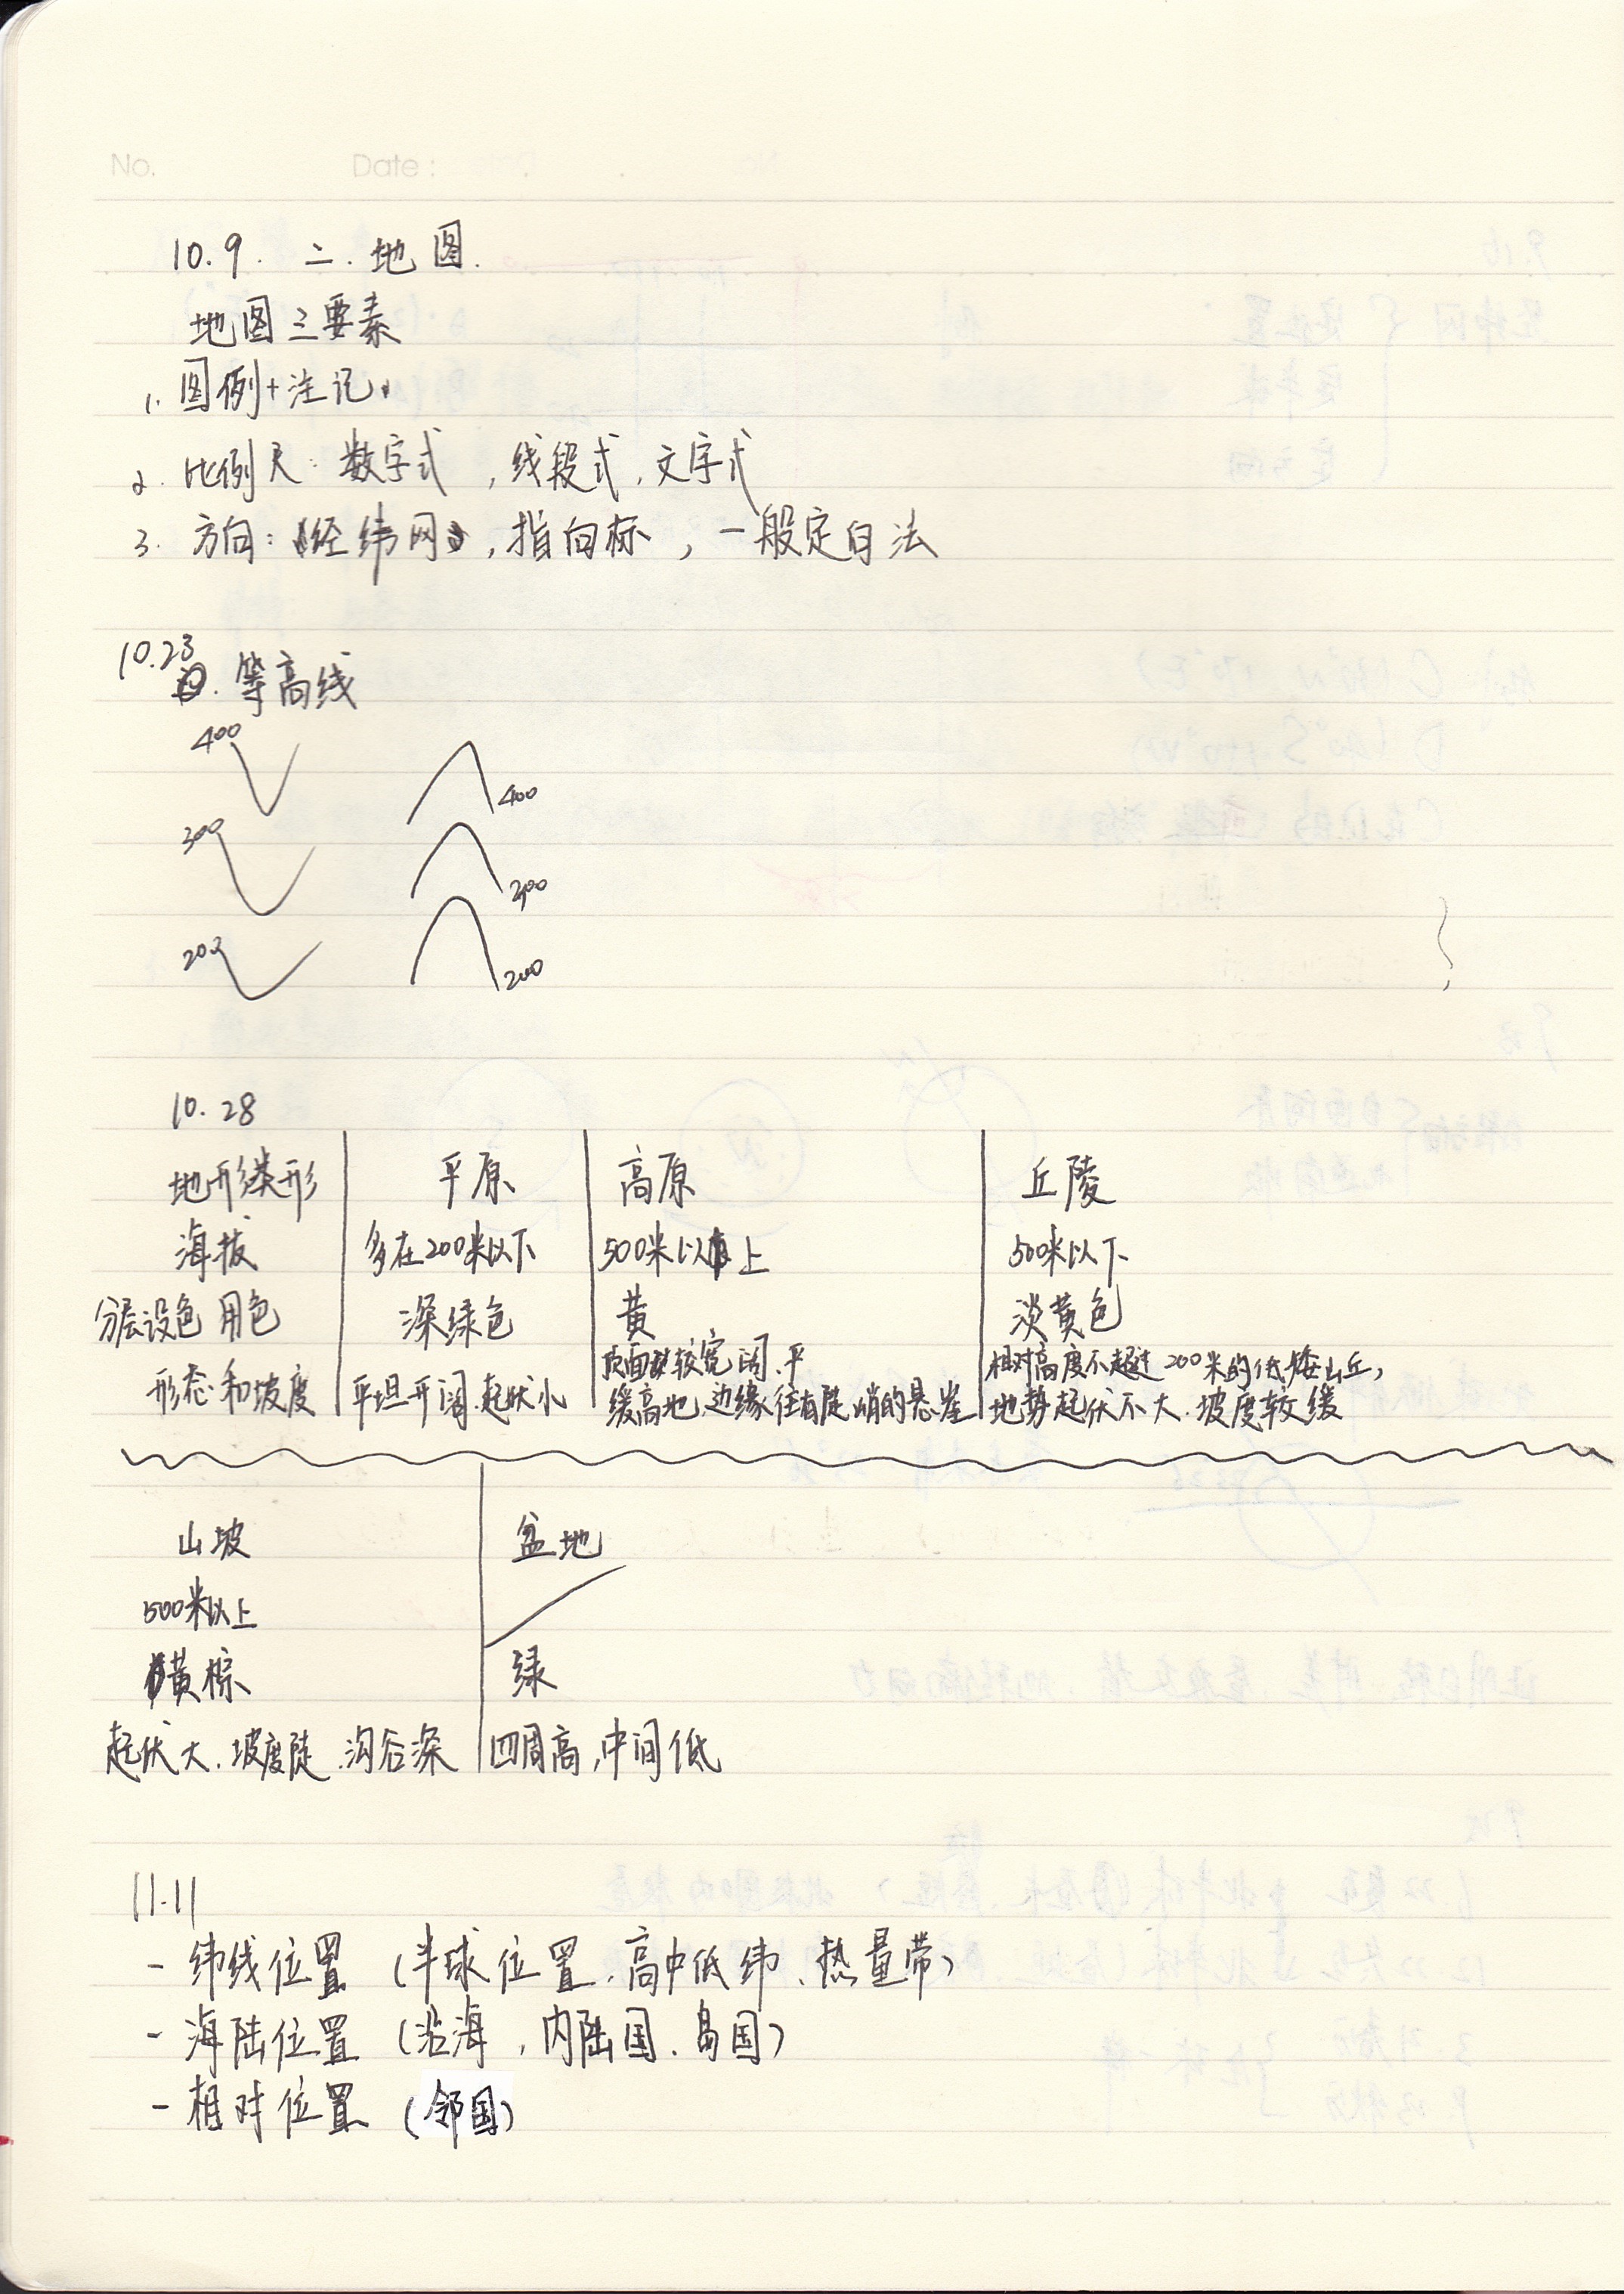 No. Date:
10.9. 二.地图.
地图三要素
1. 图例+注记.
2. 比例尺: 数字式, 线段式, 文字式
3. 方向: 《经纬网》, 指向标, 一般定向法
10.23
等高线
400
400
300
300
200
200
10.28
地形类形 平原 高原 丘陵
海拔 多在200米以下 500米以上 500米以下
分层设色 用色 深绿色 黄 淡黄色
形态和坡度 平坦开阔.起伏小 顶面较宽阔.平 相对高度不超过200米的低矮山丘,
缓高地,边缘往有陡峭的悬崖 地势起伏不大.坡度较缓
山坡 盆地
500米以上
黄棕 绿
起伏大.坡度陡.沟谷深 四周高,中间低
11.11
- 纬线位置 (半球位置.高中低纬、热量带)
- 海陆位置 (沿海,内陆国.岛国)
- 相对位置 (邻国)